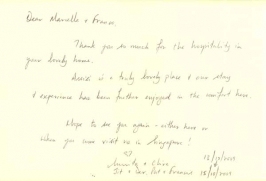 Dear Marcelle & Franco,
Thank you so much for the hospitality in
your lovely home.
is a truly lovely place & our stay
& experience has been further enjoyed in the comfort here.
Hope to see you again - either here or
when you come visit us in Singapore!
12/10/2009